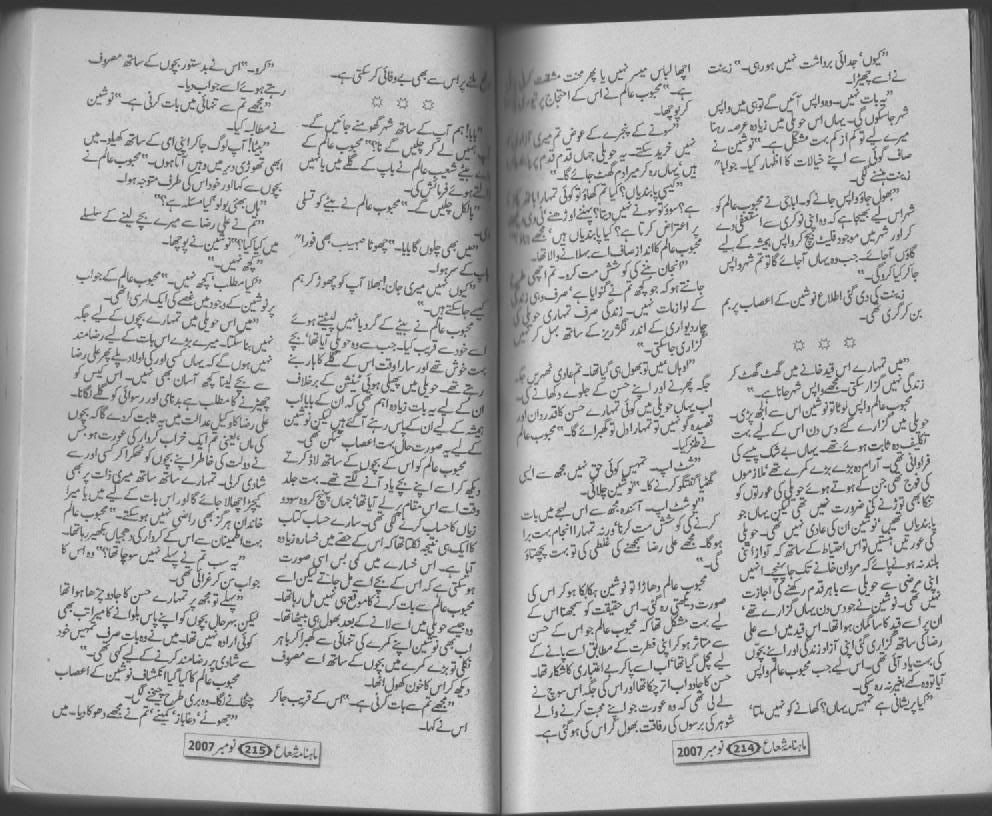 ”کیوں‘ جدائی برداشت نہیں ہو رہی۔“ زینت
نے اسے چھیڑا۔
”یہ بات نہیں۔ وہ واپس آئیں گے تو ہی میں واپس
شہر جا سکوں گی۔ یہاں اس حویلی میں زیادہ عرصہ رہنا
میرے لیے تو کم از کم بہت مشکل ہے۔“ نوشین نے
صاف گوئی سے اپنے خیالات کا اظہار کیا۔ جواباً“
زینت ہنسنے لگی۔
”بھول جاؤ واپس جانے کو۔ ابا جی نے محبوب عالم کو
شہر اس لیے بھیجا ہے کہ وہ اپنی نوکری سے استعفیٰ دے
کر اور شہر میں موجود فلیٹ بیچ کر واپس ہمیشہ کے لیے
گاؤں آجائے۔ جب وہ یہاں آجائے گا تو تم شہر واپس
جا کر کیا کرو گی۔“
زینت کی دی گئی اطلاع نوشین کے اعصاب پر بم
بن کر گری تھی۔
”میں تمہارے اس قید خانے میں گھٹ گھٹ کر
زندگی نہیں گزار سکتی۔ مجھے واپس شہر جانا ہے۔“
محبوب عالم واپس لوٹا تو نوشین اس سے الجھ پڑی۔
حویلی میں گزارے گئے دس دن اس کے لیے بہت
تکلیف دہ ثابت ہوئے تھے۔ یہاں بے شک پیسے کی
فراوانی تھی۔ آرام دہ بڑے بڑے کمرے تھے‘ ملازموں
کی فوج تھی جن کے ہوتے ہوئے حویلی کی عورتوں کو
تنکا بھی توڑنے کی ضرورت نہیں تھی لیکن یہاں جو
پابندیاں تھیں‘ نوشین ان کی عادی نہیں تھی۔ حویلی
کی عورتیں ہنستیں تو اس احتیاط کے ساتھ کہ آواز اتنی
بلند نہ ہونے پائے کہ مردان خانے تک جا پہنچے‘ انہیں
اپنی مرضی سے حویلی سے باہر قدم رکھنے کی اجازت
نہیں تھی۔ نوشین نے جو دس دن یہاں گزارے تھے‘
ان پر اسے قید کا سا گمان ہوا تھا۔ اس قید میں اسے علی
رضا کی ساتھ گزاری گئی اپنی آزاد زندگی اور اپنے بچوں
کی بہت یاد آئی تھی۔ اس لیے جب محبوب عالم واپس
آیا تو وہ کہے بغیر نہ رہ سکی۔
”کیا پریشانی ہے تمہیں یہاں؟ کھانے کو نہیں ملتا‘
اچھا لباس میسر نہیں یا پھر محنت مشقت کرنی
ہے۔“ محبوب عالم نے اس کے احتجاج پر
کر پوچھا۔
”سونے کے پنجرے کے عوض تم میری آزادی
نہیں خرید سکتے۔ یہ حویلی جہاں قدم قدم پر
ہیں یہاں رہ کر میرا دم گھٹ جائے گا۔“
”کیسی پابندیاں؟ کیا تم کھاؤ تو کوئی تمہارا ہاتھ
ہے؟ سوؤ تو سونے نہیں دیتا؟ پہننے اوڑھنے‘ ٹی وی دیکھنے
پر اعتراض کرتا ہے؟ کیا پابندیاں ہیں‘ مجھے
محبوب عالم کا انداز صاف اسے بہلانے والا تھا۔
”انجان بننے کی کوشش مت کرو۔ تم اچھی طرح
جانتے ہو کہ جو کچھ تم نے گنوایا ہے‘ صرف وہی زندگی
کے لوازمات نہیں۔ زندگی صرف تمہاری حویلی کی
چار دیواری کے اندر لگژریز کے ساتھ بہل کر نہیں
گزاری جا سکتی۔“
”اوہاں میں تو بھول ہی گیا تھا۔ تم عادی ٹھہریں جگہ
جگہ پھرنے اور اپنے حسن کے جلوے دکھانے کی۔
اب یہاں حویلی میں کوئی تمہارے حسن کا قدردان اور
قصیدہ گو نہیں تو تمہارا دل تو گھبرائے گا۔“ محبوب عالم
نے طنز کیا۔
”شٹ اپ۔ تمہیں کوئی حق نہیں مجھ سے ایسی
گھٹیا گفتگو کرنے کا۔“ نوشین چلائی۔
”یو شٹ اپ۔ آئندہ مجھ سے اس لہجے میں بات
کرنے کی کوشش مت کرنا‘ ورنہ تمہارا انجام بہت برا
ہو گا۔ مجھے علی رضا سمجھنے کی غلطی کی تو بہت پچھتاؤ
گی۔“
محبوب عالم دھاڑا تو نوشین ہکا بکا ہو کر اس کی
صورت دیکھتی رہ گئی۔ اس حقیقت کو سمجھنا اس کے
لیے بہت مشکل تھا کہ محبوب عالم جو اس کے حسن
سے متاثر ہو کر اپنی فطرت کے مطابق اسے پانے کے
لیے مچل گیا تھا‘ اب اسے پا کر بے اعتباری کا شکار تھا۔
حسن کا جادو اب اتر چکا تھا اور اس کی جگہ اس سوچ نے
لے لی تھی کہ وہ عورت جو اپنے محبت کرنے والے
شوہر کی برسوں کی رفاقت بھول کر اس کی ہو گئی ہے۔
ماہنامہ شعاع 214 نومبر 2007
ملنے پر اس سے بھی بے وفائی کر سکتی ہے۔
”بابا! ہم آپ کے ساتھ شہر گھومنے جائیں گے۔
آپ ہمیں لے کر چلیں گے نا؟“ محبوب عالم کے
بیٹے شعیب عالم نے باپ کے گلے میں بانہیں
ڈالتے ہوئے فرمائش کی۔
”بالکل چلیں گے۔“ محبوب عالم نے بیٹے کو تسلی
دی۔
”میں بھی چلوں گا بابا۔“ چھوٹا صہیب بھی فوراً“
باپ کے سر ہوا۔
”کیوں نہیں میری جان! بھلا آپ کو چھوڑ کر ہم
کیسے جا سکتے ہیں۔“
محبوب عالم نے بیٹے کے گرد بانہیں لپیٹتے ہوئے
اسے خود سے قریب کیا۔ جب سے وہ حویلی آیا تھا‘ بچے
بہت خوش تھے اور سارا وقت اس کے گلے کا ہار بنے
رہتے تھے۔ حویلی میں پھیلی ہوئی ٹینشن کے برخلاف
ان کے لیے یہ بات زیادہ اہم تھی کہ ان کے بابا اب
ہمیشہ کے لیے ان کے پاس رہنے آگئے ہیں لیکن نوشین
کے لیے یہ صورت حال بہت اعصاب شکن تھی۔
محبوب عالم کو اس کے بچوں کے ساتھ لاڈ کرتے
دیکھ کر اسے اپنے بچے یاد آنے لگتے تھے۔ بہت جلد
وقت اسے اس مقام پر لے آیا تھا‘ جہاں پہنچ کر وہ سود و
زیاں کا حساب کرنے لگی تھی۔ سارے حساب کتاب
کا ایک ہی نتیجہ نکلتا تھا کہ اس کے حصے میں خسارہ زیادہ
آیا ہے۔ اس خسارے میں کمی بس اسی صورت
ہو سکتی ہے کہ اس کے بچے اسے مل جاتے لیکن اسے
محبوب عالم سے بات کرنے کا موقع ہی نہیں مل رہا تھا۔
وہ جیسے حویلی میں اسے لانے کے بعد بھول ہی بیٹھا تھا۔
اب بھی نوشین اپنے کمرے کی تنہائی سے گھبرا کر باہر
نکلی تو بڑے کمرے میں بچوں کے ساتھ اسے مصروف
دیکھ کر اس کا خون کھول اٹھا۔
”مجھے تم سے بات کرنی ہے۔“ اس کے قریب جا کر
اس نے کہا۔
”کرو۔“ اس نے بدستور بچوں کے ساتھ مصروف
رہتے ہوئے اسے جواب دیا۔
”مجھے تم سے تنہائی میں بات کرنی ہے۔“ نوشین
نے مطالبہ کیا۔
”بیٹا! آپ لوگ جا کر اپنی امی کے ساتھ کھیلو۔ میں
ابھی تھوڑی دیر میں وہیں آتا ہوں۔“ محبوب عالم نے
بچوں سے کہا اور خود اس کی طرف متوجہ ہوا۔
”ہاں بھئی بولو‘ کیا مسئلہ ہے؟“
”تم نے علی رضا سے میرے بچے لینے کے سلسلے
میں کیا کیا؟“ نوشین نے پوچھا۔
”کچھ نہیں۔“
”کیا مطلب‘ کچھ نہیں۔“ محبوب عالم کے جواب
پر نوشین کے وجود میں غصے کی ایک لہر سی اٹھی۔
”میں اس حویلی میں تمہارے بچوں کے لیے جگہ
نہیں بنا سکتا۔ میرے بڑے اس بات کے لیے رضامند
نہیں ہوں گے کہ یہاں کسی اور کی اولاد پلے پھر علی رضا
سے بچے لینا کچھ آسان بھی نہیں۔ اس کیس کو
چھیڑنے کا مطلب ہے بدنامی اور رسوائی کو گلے لگانا۔
علی رضا کا وکیل عدالت میں یہ ثابت کر دے گا کہ بچوں
کی ماں‘ یعنی تم ایک خراب کردار کی عورت ہو‘ جس
نے دولت کی خاطر اپنے بچوں کو ٹھکرا کر کسی اور سے
شادی کر لی۔ تمہارے ساتھ ساتھ میری ذات پر بھی
کیچڑ اچھالا جائے گا اور اس بات کے لیے میں یا میرا
خاندان ہرگز بھی راضی نہیں ہو سکتے۔“ محبوب عالم
بہت اطمینان سے اس کے کردار کی دھجیاں بکھیر رہا تھا۔
”یہ سب تم نے پہلے نہیں سوچا تھا؟“ وہ اس کا
جواب سن کر غرائی تھی۔
”پہلے تو مجھ پر تمہارے حسن کا جادو چڑھا ہوا تھا
لیکن بہرحال بچوں کو اپنے پاس بلوانے کا میرا تب بھی
کوئی ارادہ نہیں تھا۔ میں نے وہ بات صرف تمہیں خود
سے شادی پر رضامند کرنے کے لیے کہی تھی۔“
محبوب عالم کا کیا گیا انکشاف نوشین کے اعصاب
چٹخانے لگا۔ وہ بری طرح چیخنے لگی۔
”جھوٹے‘ دغاباز‘ کمینے‘ تم نے مجھے دھوکا دیا۔ میں
ماہنامہ شعاع 215 نومبر 2007